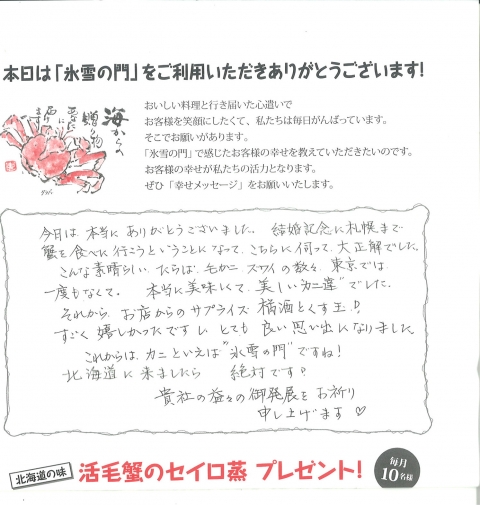 本日は「氷雪の門」をご利用いただきありがとうございます!
海からの
贈り物
おいしい料理と行き届いた心遣いで
お客様を笑顔にしたくて、私たちは毎日がんばっています。
そこでお願いがあります。
「氷雪の門」で感じたお客様の幸せを教えていただきたいのです。
お客様の幸せが私たちの活力となります。
ぜひ「幸せメッセージ」をお願いいたします。
今日は、本当にありがとうございました。 結婚記念に札幌まで
蟹を食べに行こうということになって、こちらに伺って、大正解でした。
こんな素晴らしい たらば、毛カニ、ズワイの数々、東京では
一度もなくて。 本当に美味しくて、美しい"カニ達"でした。
それから、お店からのサプライズ 樽酒とくす玉!?
すごく嬉しかったですし、とても良い思い出になりました。
これからは、カニといえば"氷雪の門"ですね!
北海道に来ましたら 絶対です?
貴社の益々の御発展をお祈り
申し上げます♡
北海道の味
活毛蟹のセイロ蒸 プレゼント!
毎月
10名様